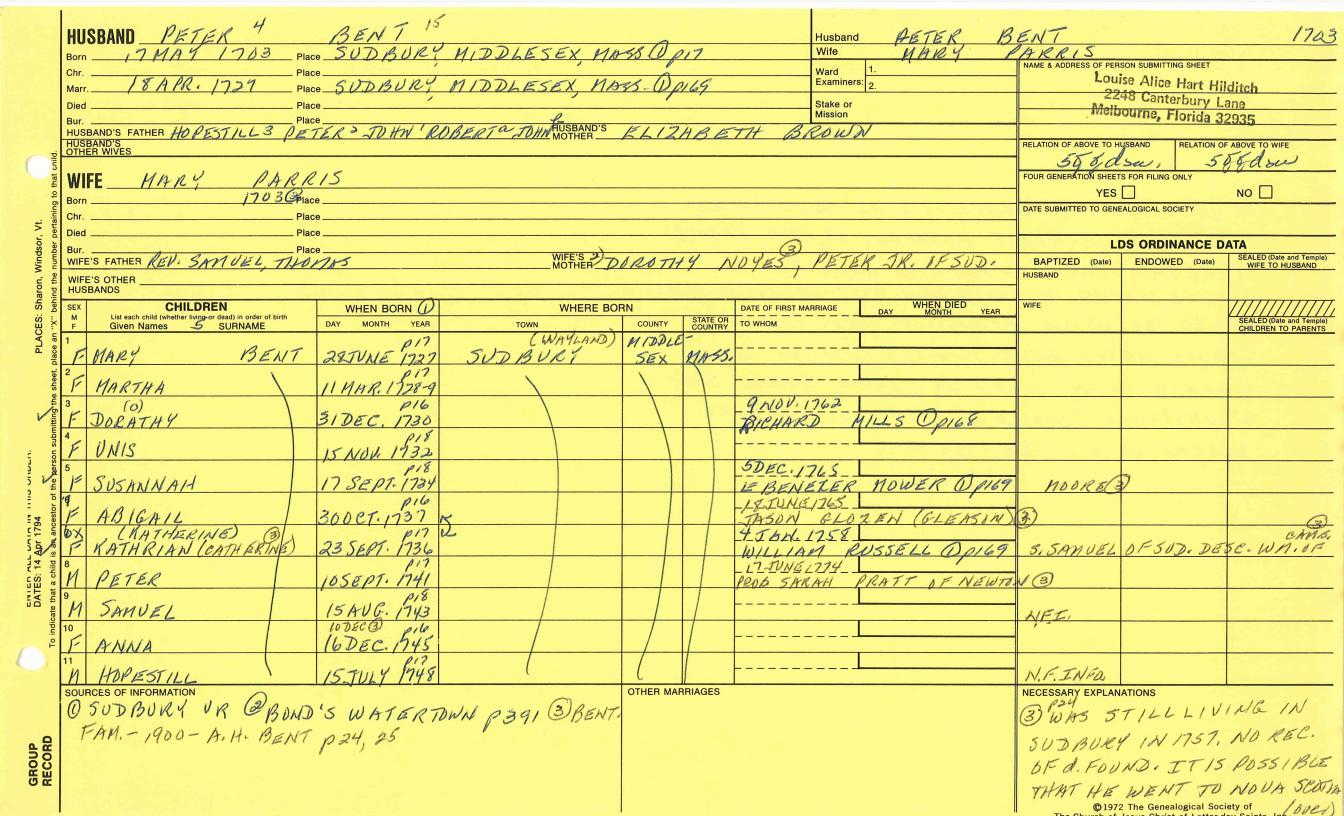 HUSBAND PETER 4 BENT 15
Born 17 MAY 1703 Place SUDBURY, MIDDLESEX, MASS ① p17
Chr. Place
Marr. 18 APR. 1727 Place SUDBURY, MIDDLESEX, MASS. ① p169
Died Place
Bur. Place
HUSBAND'S FATHER HOPESTILL3 PETER2 JOHN1 ROBERTa JOHNb HUSBAND'S MOTHER ELIZABETH BROWN
HUSBAND'S OTHER WIVES
Husband PETER BENT 1703
Wife MARY PARRIS
Ward Examiners: 1.
2.
Stake or Mission
NAME & ADDRESS OF PERSON SUBMITTING SHEET
Louise Alice Hart Hilditch
2248 Canterbury Lane
Melbourne, Florida 32935
RELATION OF ABOVE TO HUSBAND RELATION OF ABOVE TO WIFE
FOUR GENERATION SHEETS FOR FILING ONLY
YES NO
DATE SUBMITTED TO GENEALOGICAL SOCIETY
WIFE MARY PARRIS
Born 1703 Place
Chr. Place
Died Place
Bur. Place
WIFE'S FATHER REV. SAMUEL, THOMAS WIFE'S MOTHER DOROTHY NOYES ③, PETER JR. OF SUD.
WIFE'S OTHER HUSBANDS
LDS ORDINANCE DATA
BAPTIZED (Date) ENDOWED (Date) SEALED (Date and Temple) WIFE TO HUSBAND
HUSBAND
WIFE
SEALED (Date and Temple) CHILDREN TO PARENTS
SEX M F
CHILDREN
List each child (whether living or dead) in order of birth
Given Names 5 SURNAME
WHEN BORN ①
DAY MONTH YEAR
WHERE BORN
TOWN COUNTY STATE OR COUNTRY
DATE OF FIRST MARRIAGE
TO WHOM
WHEN DIED
DAY MONTH YEAR
1 p17 (WAYLAND) MIDDLE-
F MARY BENT 28 JUNE 1727 SUDBURY SEX MASS.
2 p17
F MARTHA 11 MAR. 1728-9
3 (O) p16 9 NOV. 1762
F DORATHY 31 DEC. 1730 RICHARD MILLS ① p168
4 p18
F UNIS 15 NOV. 1732
5 p18 5 DEC. 1765
F SUSANNAH 17 SEPT. 1734 EBENEZER MOWER ① p169 MOORE ③
p16 18 JUNE 1765
F ABIGAIL 30 OCT. 1737 JASON GLOZEN (GLEASON) ③
(KATHERINE) ③ p17 4 JAN. 1758 ③
F KATHRIAN (CATHERINE) 23 SEPT. 1736 WILLIAM RUSSELL ① p169 S. SAMUEL OF SUD. DESC. WM. OF CAMB.
8 p17 17 JUNE 1774
M PETER 10 SEPT. 1741 PROB SARAH PRATT OF NEWTON ③
9 p18
M SAMUEL 15 AUG. 1743 N.F.I.
10 10 DEC ③ p16
F ANNA 16 DEC. 1745
11 p17
M HOPESTILL 15 JULY 1748 N.F. INFO
SOURCES OF INFORMATION
① SUDBURY VR ② BOND'S WATERTOWN p391 ③ BENT.
FAM. - 1900 - A.H. BENT p24, 25
OTHER MARRIAGES
NECESSARY EXPLANATIONS
p24
③ WAS STILL LIVING IN
SUDBURY IN 1757. NO REC.
OF d. FOUND. IT IS POSSIBLE
THAT HE WENT TO NOVA SCOTIA
(over)
©1972 The Genealogical Society of
The Church of Jesus Christ of Latter-day Saints, Inc.
PLACES: Sharon, Windsor, Vt.
DATES: 14 Apr 1794
ENTER ALL DATA IN THIS ORDER:
To indicate that a child is an ancestor of the person submitting the sheet, place an "X" behind the number pertaining to that child.
GROUP RECORD